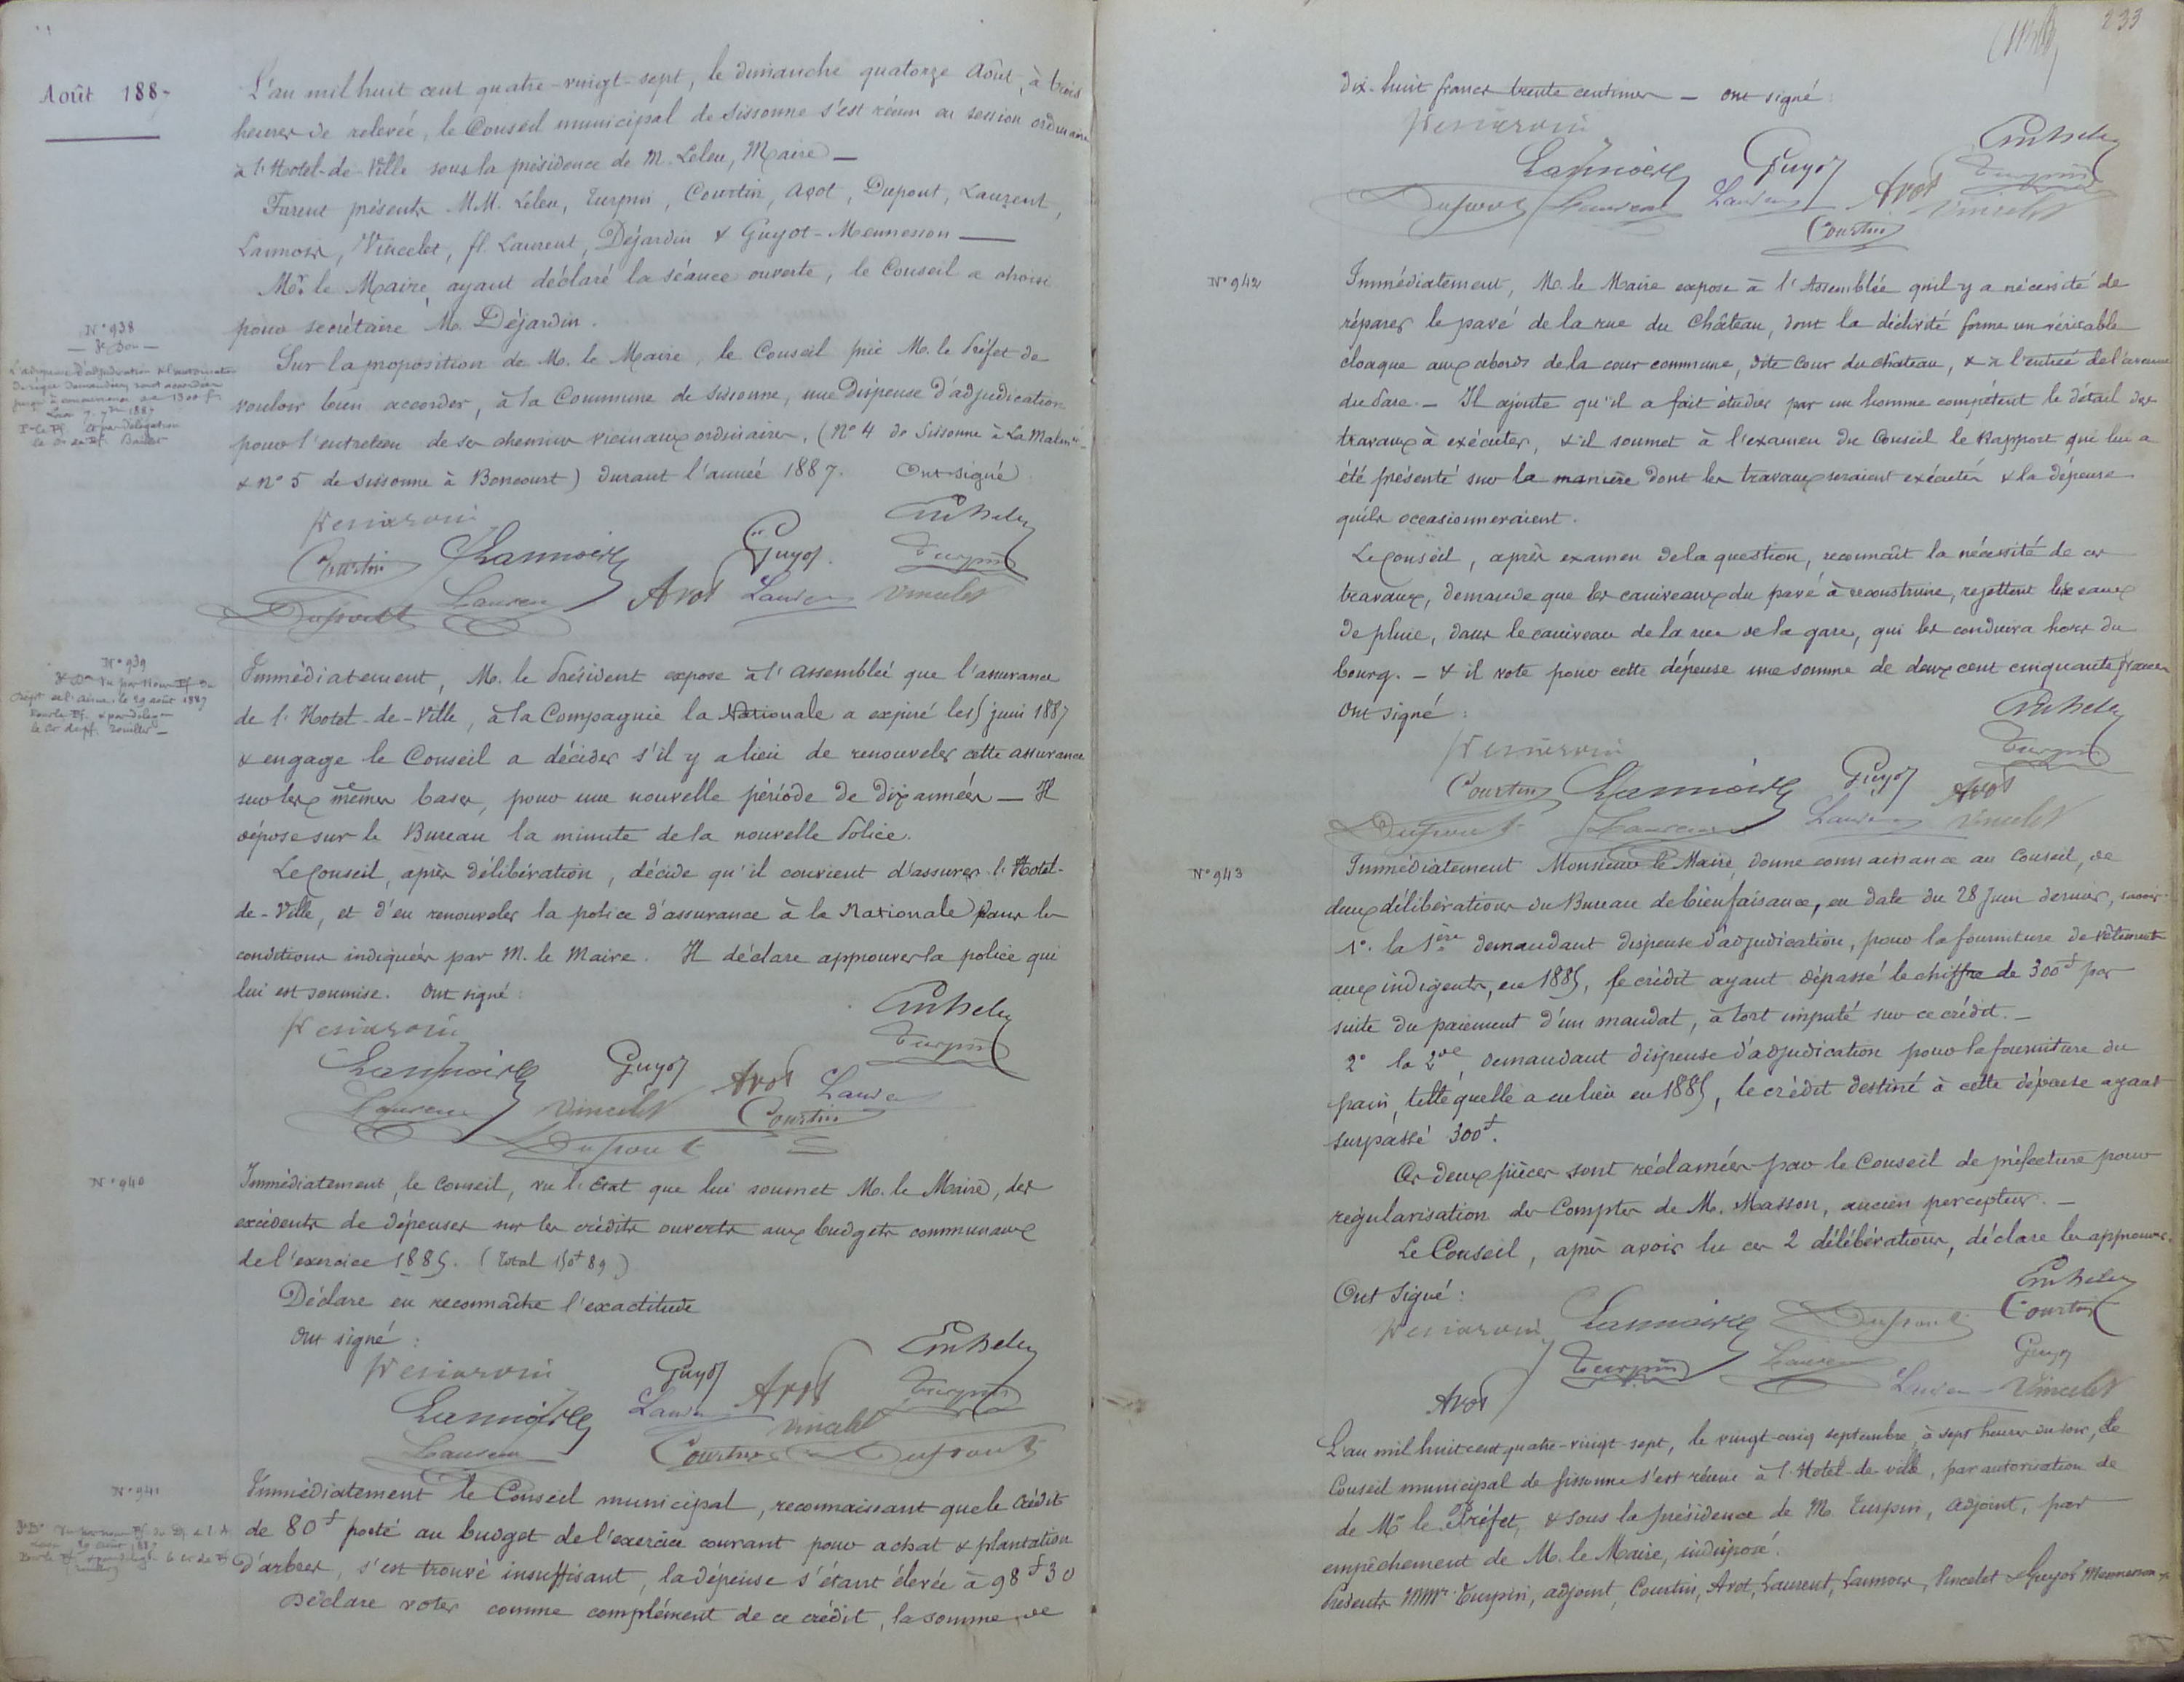 Août 188-
L'an mil huit cent quatre-vingt-sept, le dimanche quatorze Août, à trois
heures de relevée, le Conseil municipal de Sissonne s'est réuni en session ordinaire
à l'Hotel-de-Ville sous la présidence de M. Leleu, Maire —
Furent présents MM. Leleu, Turpin, Courtin, Avot, Dupont, Laurent,
Lannois, Vincelet, fl. Laurent, Déjardin & Guyot-Mennesson —
Mr. le Maire, ayant déclaré la séance ouverte, le Conseil a choisi
pour secrétaire M. Déjardin.
N° 938
Sur la proposition de M. le Maire, le Conseil prie M. le Préfet de
vouloir bien accorder, à la Commune de Sissonne, une Dispense d'adjudication
pour l'entretien de ses chemins vicinaux ordinaires, (N° 4 de Sissonne à La Malm-
& n° 5 de Sissonne à Boncourt) durant l'année 1887. Ont signé
Courtin Lannois Guyot Turpin
Dupont Laurent Avot Laurent Vincelet
N° 939
Immédiatement, M. le Président expose à l'assemblée que l'assurance
de l'Hotel-de-Ville, à la Compagnie la Nationale a expiré le 15 juin 1887
& engage le Conseil a décider s'il y a lieu de renouveler cette assurance
sur les mêmes bases, pour une nouvelle période de dix années — Il
dépose sur le Bureau la minute de la nouvelle Police.
Le Conseil, après délibération, décide qu'il convient d'assurer l'Hotel-
de-Ville, et d'en renouveler la police d'assurance à la Nationale dans les
conditions indiquées par M. le Maire. Il déclare approuver la police qui
lui est soumise. Ont signé :
Turpin
Lannois Guyot Avot Laurent
Laurent Vincelet Courtin
Dupont
N° 940
Immédiatement, le Conseil, vu l'Etat que lui soumet M. le Maire, des
excédents de dépenses sur les crédits ouverts aux budgets communaux
de l'exercice 1885. (Total 150f 89)
Déclare en reconnaître l'exactitude
Ont signé :
Guyot Avot Turpin
Lannois Laurent Vincelet
Laurent Courtin Dupont
N° 941
Immédiatement le Conseil municipal, reconnaissant que le Crédit
de 80f porté au budget de l'exercice courant pour achat & plantation
d'arbres, s'est trouvé insuffisant, la dépense s'étant élevée à 98f30
Déclare voter comme complément de ce crédit, la somme de
233
dix-huit francs trente centimes — Ont signé
Lannois Guyot Turpin
Dupont Laurent Laurent Avot Vincelet
Courtin
N° 942
Immédiatement, M. le Maire expose à l'Assemblée qu'il y a nécessité de
réparer le pavé de la rue du Château, dont la déclivité forme un véritable
cloaque aux abords de la cour commune, dite Cour du Château, & à l'entrée de l'avenue
du Parc. — Il ajoute qu'il a fait étudier par un homme compétent le détail des
travaux à exécuter, & il soumet à l'examen du Conseil le Rapport qui lui a
été présenté sur la manière dont les travaux seraient exécutés & la dépense
qu'ils occasionneraient.
Le Conseil, après examen de la question, reconnaît la nécessité de ces
travaux, demande que les caniveaux du pavé à reconstruire, rejettent les eaux
de pluie, dans le caniveau de la rue de la gare, qui les conduira hors du
bourg. — & il vote pour cette dépense une somme de deux cent cinquante francs
Ont signé :
Turpin
Courtin Lannois Guyot Avot
Dupont Laurent Laurent Vincelet
N° 943
Immédiatement Monsieur le Maire, donne connaissance au Conseil, de
deux délibérations du Bureau de bienfaisance, en date du 28 Juin dernier, savoir
1°. la 1ère demandant dispense d'adjudication, pour la fourniture de vêtements
aux indigents, en 1885, le crédit ayant dépassé le chiffre de 300f par
suite du paiement d'un mandat, à tort imputé sur ce crédit. —
2° la 2de, demandant dispense d'adjudication pour la fourniture du
pain, telle qu'elle a eu lieu en 1885, le crédit destiné à cette dépense ayant
surpassé 300f.
Ces deux pièces sont réclamées par le Conseil de préfecture pour
régularisation des Comptes de M. Masson, ancien percepteur. —
Le Conseil, après avoir lu ces 2 délibérations, déclare les approuver.
Ont Signé :
Lannois Dupont Courtin
Turpin Laurent Guyot
Avot Laurent Vincelet
L'an mil huit cent quatre-vingt-sept, le vingt-cinq septembre, à sept heures du soir, le
Conseil municipal de Sissonne s'est réuni à l'Hotel-de-ville, par autorisation de
de Mr le Préfet, & sous la présidence de M. Turpin, Adjoint, par
empêchement de M. le Maire, indisposé.
Présents MMrs Turpin, adjoint, Courtin, Avot, Laurent, Lannois, Vincelet & Guyot Mennesson